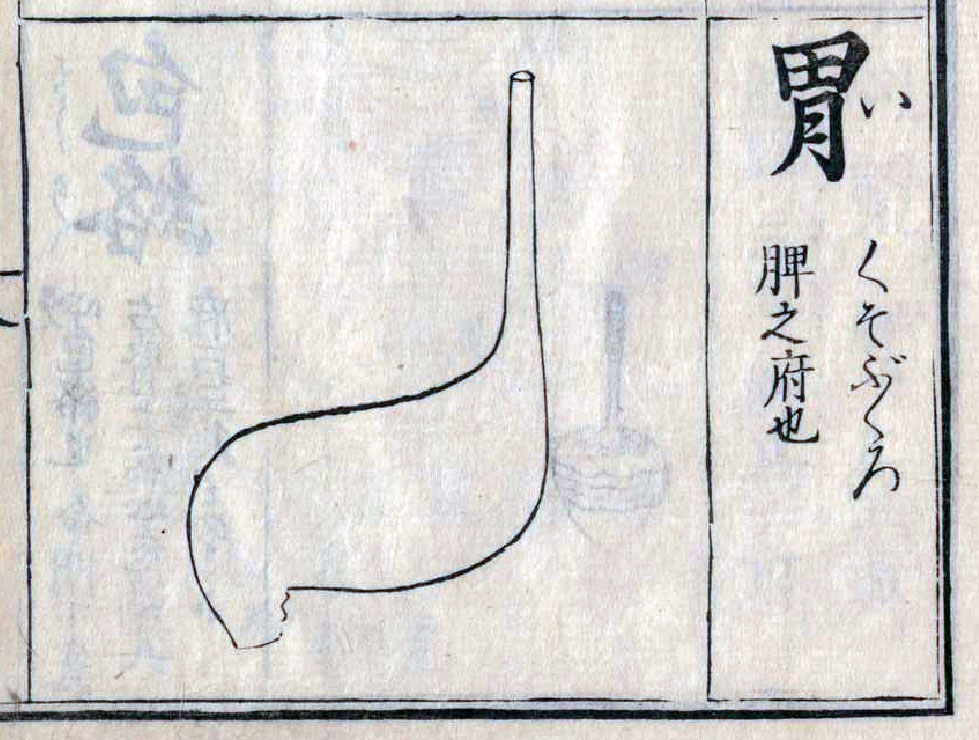 胃
い
くそぶくろ
脾之府也